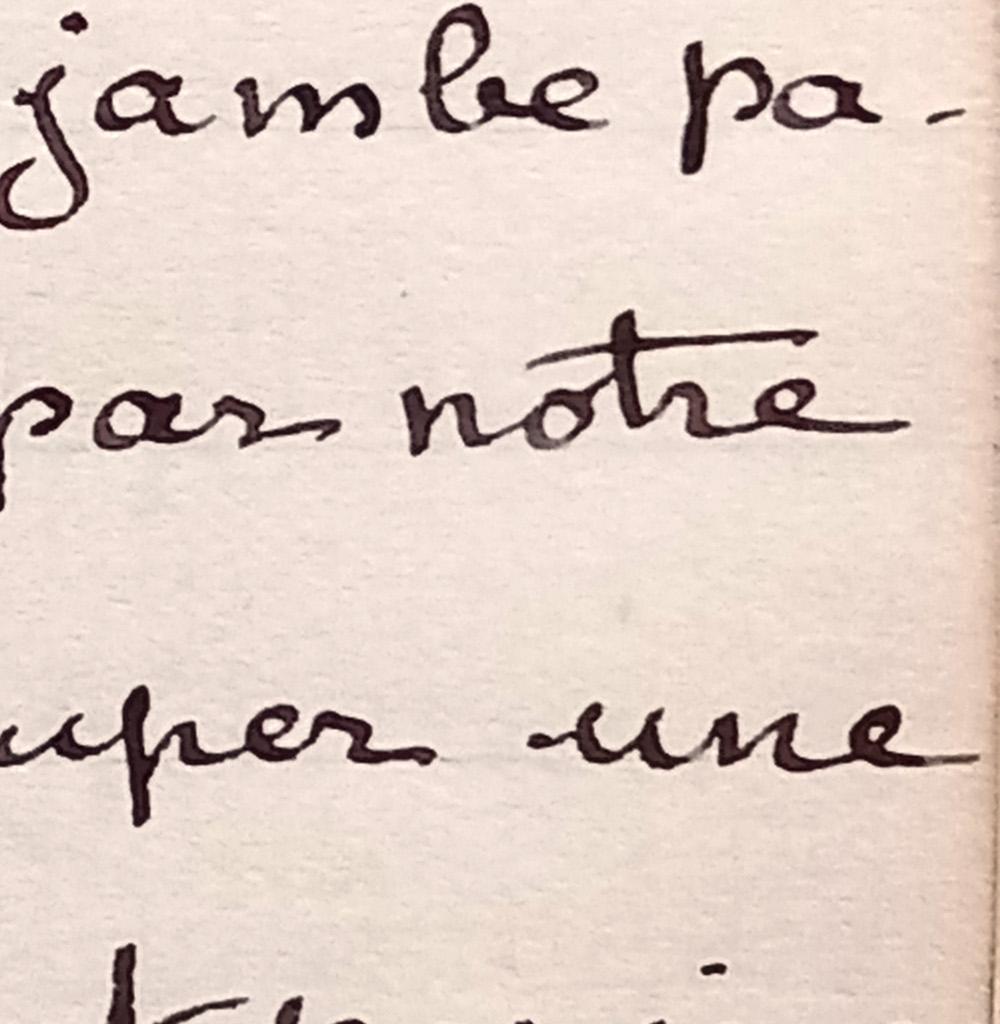 jambe pa-
par notre
uper une